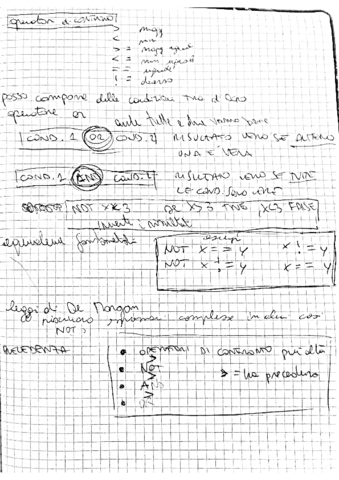 operatori di confronto
> magg
< min
> = magg uguale
< = min uguale
= = uguale
! = diverso
posso comporre delle condizioni
operatore or
anche tutte e due
COND. 1 OR COND. 2 RISULTATO VERO SE ALMENO
UNA È VERA
COND. 1 AND COND. 2 RISULTATO VERO SE TUTTE
LE COND. SONO VERE
NOT X<3 X>3 TRUE X<3 FALSE
inverte i risultati
equivalenze
esempi
NOT X == Y X != Y
NOT X != Y X == Y
leggi di De Morgan
complesse in due con
NOT
PRECEDENZA
• OPERATORI DI CONFRONTO più alta
• NOT
• AND
• OR
> = ha precedenza